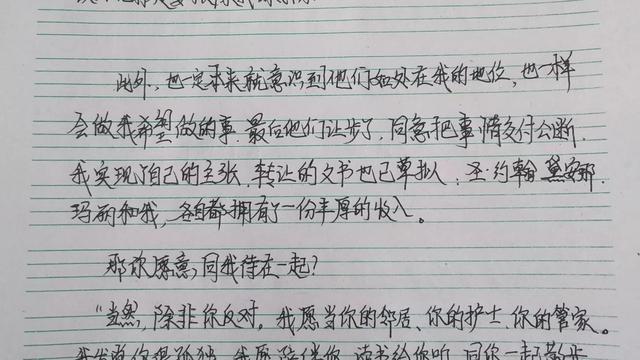 此外，也一定本来就意识到他们如处在我的地位，也一样
会做我希望做的事。最后他们让步了，同意把事情交付公断。
我实现了自己的主张，转让的文书也已草拟：圣·约翰 黛安娜
玛丽和我，各自都拥有了一份丰厚的收入。
那你愿意同我待在一起？
“当然，除非你反对。我愿当你的邻居、你的护士、你的管家。
我发觉你很孤独，我愿陪伴你，读书给你听，同你一起散步